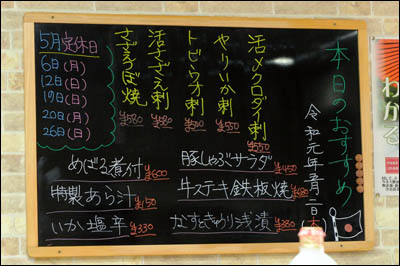 本日のおすすめ
令和元年五月二日(木)
活メクロダイ刺
¥550
やりいか刺
¥550
トビウオ刺
¥500
活さざえ刺
¥580
さざえつぼ焼
¥580
5月定休日
6日(月)
12日(日)
19日(日)
20日(月)
26日(日)
めばる煮付 ¥600
特製あら汁 ¥150
いか塩辛 ¥330
豚しゃぶサラダ ¥450
牛ステキ鉄板焼 ¥680
なすときゅうり浅漬 ¥280
わかる